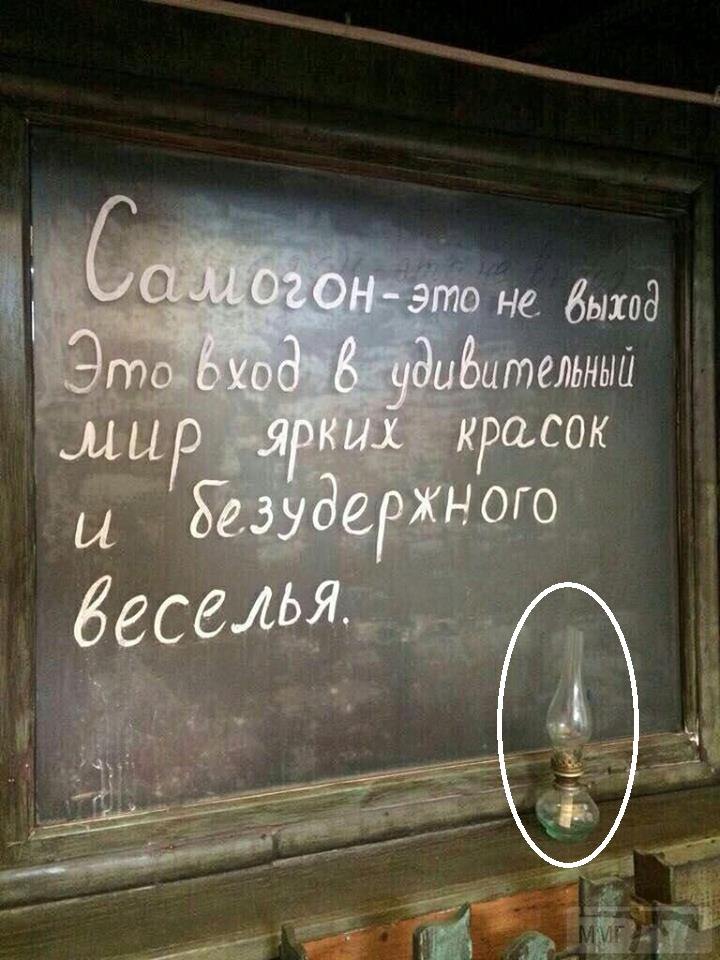 Самогон - это не выход
Это вход в удивительный
мир ярких красок
и безудержного
веселья.
MMГ